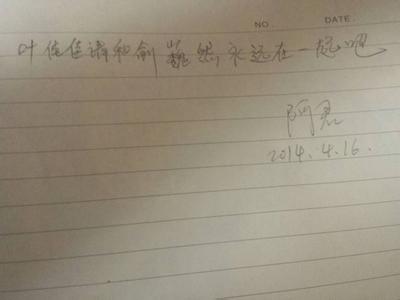 NO. DATE.
叶佳佳请和俞巍然永远在一起吧
阿君
2014.4.16.